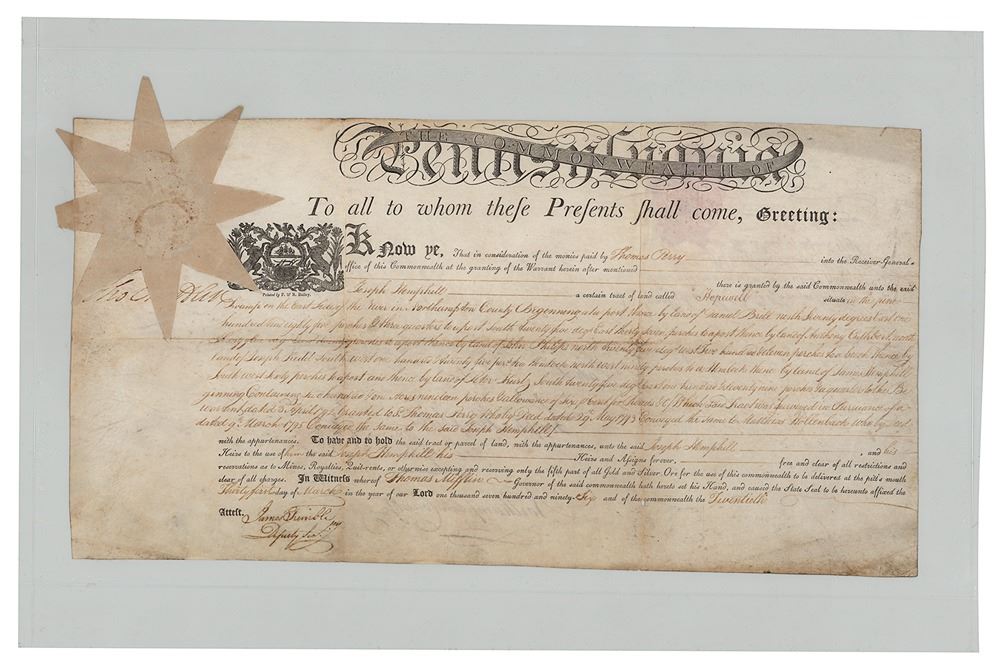 THE COMMONWEALTH OF
Pennsylvania
To all to whom theſe Preſents ſhall come, Greeting:
Know ye, That in consideration of the monies paid by Thomas Perry into the Receiver-General's
office of this Commonwealth at the granting of the Warrant herein after mentioned there is granted by the said Commonwealth unto the said
Printed by F. & R. Bailey.
Joseph Hemphill a certain tract of land called Hopewell situate in the
Swamp on the East Side of the River in Northampton County Beginning at a post thence by land of Daniel north Seventy degrees East one
hundred and eighty five perches & three quarters to a post South twenty five deg. East forty Seven perches to a post thence by land of Anthony Cuthbert north
deg. East perches to a post thence by land of John Philips north Twenty five deg. west five hundred & eleven perches to a beech thence by
land of Joseph South west one hundred & twenty five perches to a Hemlock north west ninety perches to a Hemlock thence by land of James Hemphill
South west Sixty perches to a post and thence by land of Peter South Twenty five deg. East one hundred & Seventy nine perches & a quarter to the Be
ginning Containing acres nineteen perches & allowance of Six Per Cent for Roads &c. Which Said Tract was Surveyed in Pursuance of a
warrant dated 3 April 1792 Granted to S. Thomas Perry Who by Deed dated 29 May 1793 Conveyed the Same to Matthias Hollenback who by deed
dated 9th March 1795 Conveyed the Same to the Said Joseph Hemphill
with the appurtenances. To have and to hold the said tract or parcel of land, with the appurtenances, unto the said Joseph Hemphill, and his
Heirs to the use of him the said Joseph Hemphill his Heirs and Assigns forever, free and clear of all restrictions and
reservations as to Mines, Royalties, Quit-rents, or otherwise excepting and reserving only the fifth part of all Gold and Silver Ore for the use of this commonwealth to be delivered at the pit's mouth
clear of all charges. In Witness whereof Thomas Mifflin Governor of the said commonwealth hath hereto set his Hand, and caused the State Seal to be hereunto affixed the
Thirty first day of March in the year of our Lord one thousand seven hundred and ninety-Six and of the commonwealth the Twentieth
Attest.
James Trimble
Deputy Secy